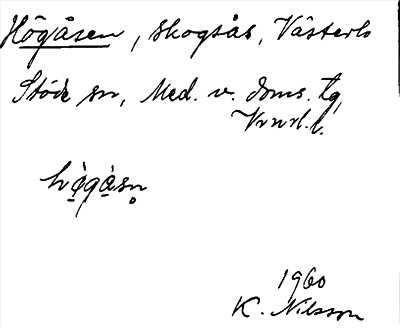 Högåsen, skogsås, Västerlo
Stöde sn, Med. v. doms. tg,
Vrnrl. l.
hö̀gå̀sn̥
1960
K. Nilsson